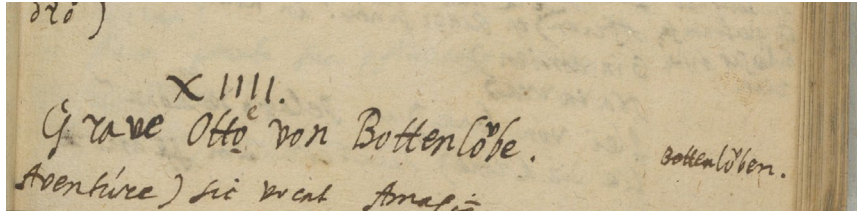 drö)
XIIII.
Grave Ottoͤ von Bottenlöͮbe.
Bottenlöͮben.
Aventúre) sic vocat